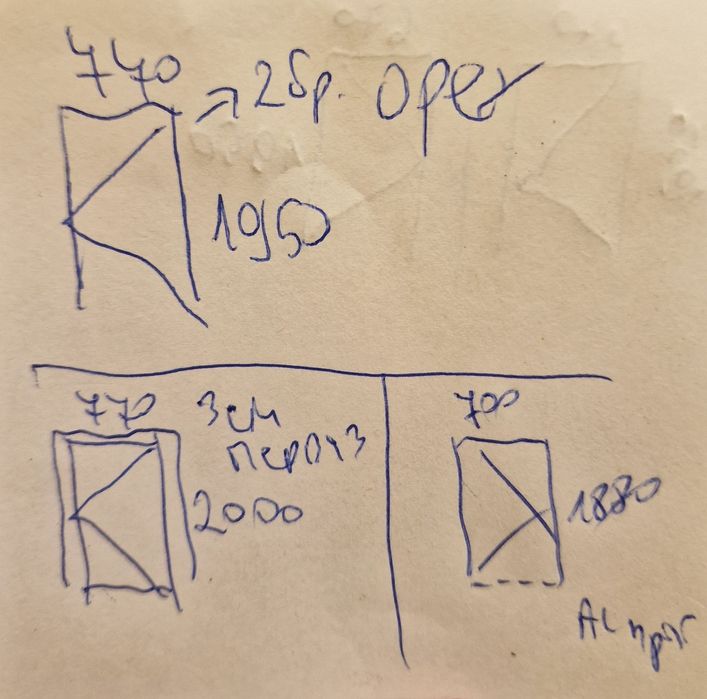 740
→ 2бр. орех
1950
770
3см
перваз
2000
700
1880
AL праг